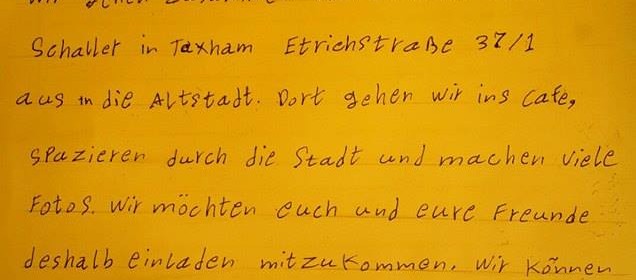 wir gehen
Schaller in Taxham Etrichstraße 37/1
aus in die Altstadt. Dort gehen wir ins Cafe,
spazieren durch die Stadt und machen viele
Fotos. Wir möchten euch und eure Freunde
deshalb einladen mitzukommen. Wir können